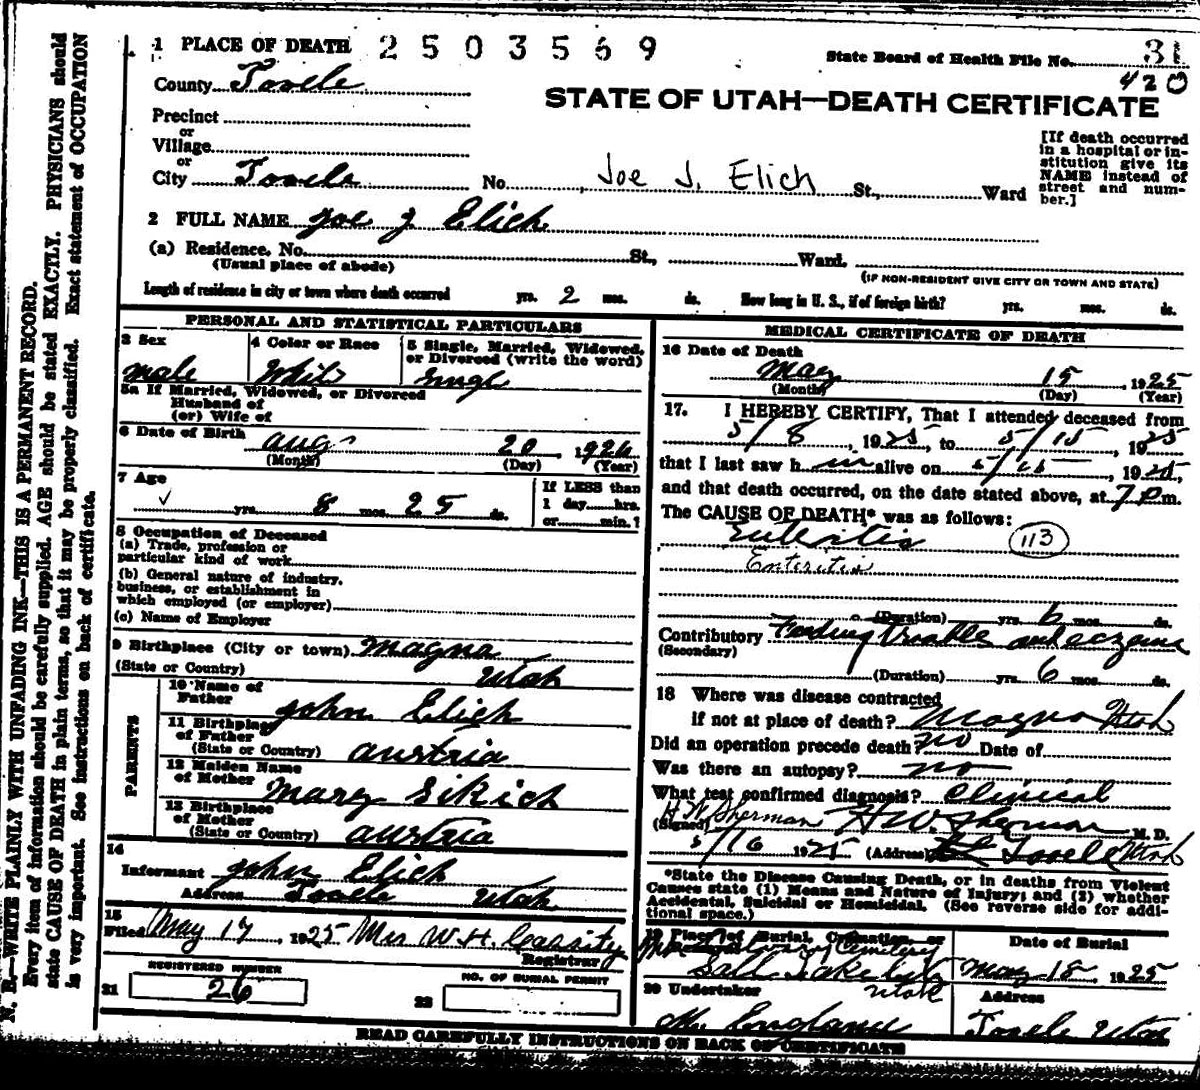 1 PLACE OF DEATH 2503569 State Board of Health File No. 31
420
County Tooele
STATE OF UTAH—DEATH CERTIFICATE
Precinct
or
Village
or
City Tooele No. Joe J. Elich St., Ward
[If death occurred in a hospital or institution give its NAME instead of street and number.]
2 FULL NAME Joe J Elich
(a) Residence, No. St., Ward.
(Usual place of abode) (IF NON-RESIDENT GIVE CITY OR TOWN AND STATE)
Length of residence in city or town where death occurred yrs. 2 mos. ds. How long in U. S., if of foreign birth? yrs. mos. ds.
PERSONAL AND STATISTICAL PARTICULARS
3 Sex 4 Color or Race 5 Single, Married, Widowed,
or Divorced (write the word)
male White
5a If Married, Widowed, or Divorced
Husband of
(or) Wife of
6 Date of Birth Aug 20 1924
(Month) (Day) (Year)
7 Age If LESS than
yrs. 8 mos. 25 ds. 1 day hrs.
or min.?
8 Occupation of Deceased
(a) Trade, profession or
particular kind of work
(b) General nature of industry,
business, or establishment in
which employed (or employer)
(c) Name of Employer
9 Birthplace (City or town) Magna
(State or Country) Utah
PARENTS
10 Name of
Father John Elich
11 Birthplace
of Father
(State or Country) Austria
12 Maiden Name
of Mother Mary Sikich
13 Birthplace
of Mother
(State or Country) Austria
14
Informant John Elich
Address Tooele Utah
15
Filed May 17, 1925 Mrs W. H. Cassity
Registrar
REGISTERED NUMBER NO. OF BURIAL PERMIT
21 26 22
MEDICAL CERTIFICATE OF DEATH
16 Date of Death
May 15, 1925
(Month) (Day) (Year)
17. I HEREBY CERTIFY, That I attended deceased from
5/8, 1925, to 5/15, 1925
that I last saw him alive on 5/15, 1925,
and that death occurred, on the date stated above, at 7 P.m.
The CAUSE OF DEATH* was as follows:
Enteritis 113
Enteritis
(Duration) yrs. 6 mos. ds.
Contributory Feeding trouble and eczema
(Secondary)
(Duration) yrs. 6 mos. ds.
18 Where was disease contracted
if not at place of death? Magna Utah
Did an operation precede death? no Date of
Was there an autopsy? no
What test confirmed diagnosis? Clinical
H W Sherman
(Signed) H W. Sherman M. D.
5/16 1925 (Address) Tooele Utah
*State the Disease Causing Death, or in deaths from Violent
Causes state (1) Means and Nature of Injury; and (2) whether
Accidental, Suicidal or Homicidal. (See reverse side for addi-
tional space.)
19 Place of Burial, Cremation, or Date of Burial
Cemetery
Salt Lake City May 18, 1925
20 Undertaker Utah Address
England Tooele Utah
READ CAREFULLY INSTRUCTIONS ON BACK OF CERTIFICATE
N. B.—WRITE PLAINLY WITH UNFADING INK—THIS IS A PERMANENT RECORD.
Every item of information should be carefully supplied. AGE should be stated EXACTLY. PHYSICIANS should
state CAUSE OF DEATH in plain terms, so that it may be properly classified. Exact statement of OCCUPATION
is very important. See instructions on back of certificate.